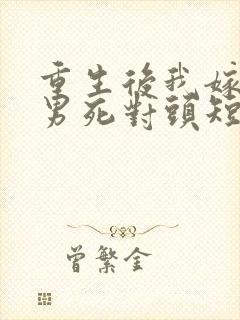 重生後我嫁
男死對頭短
曾繁全